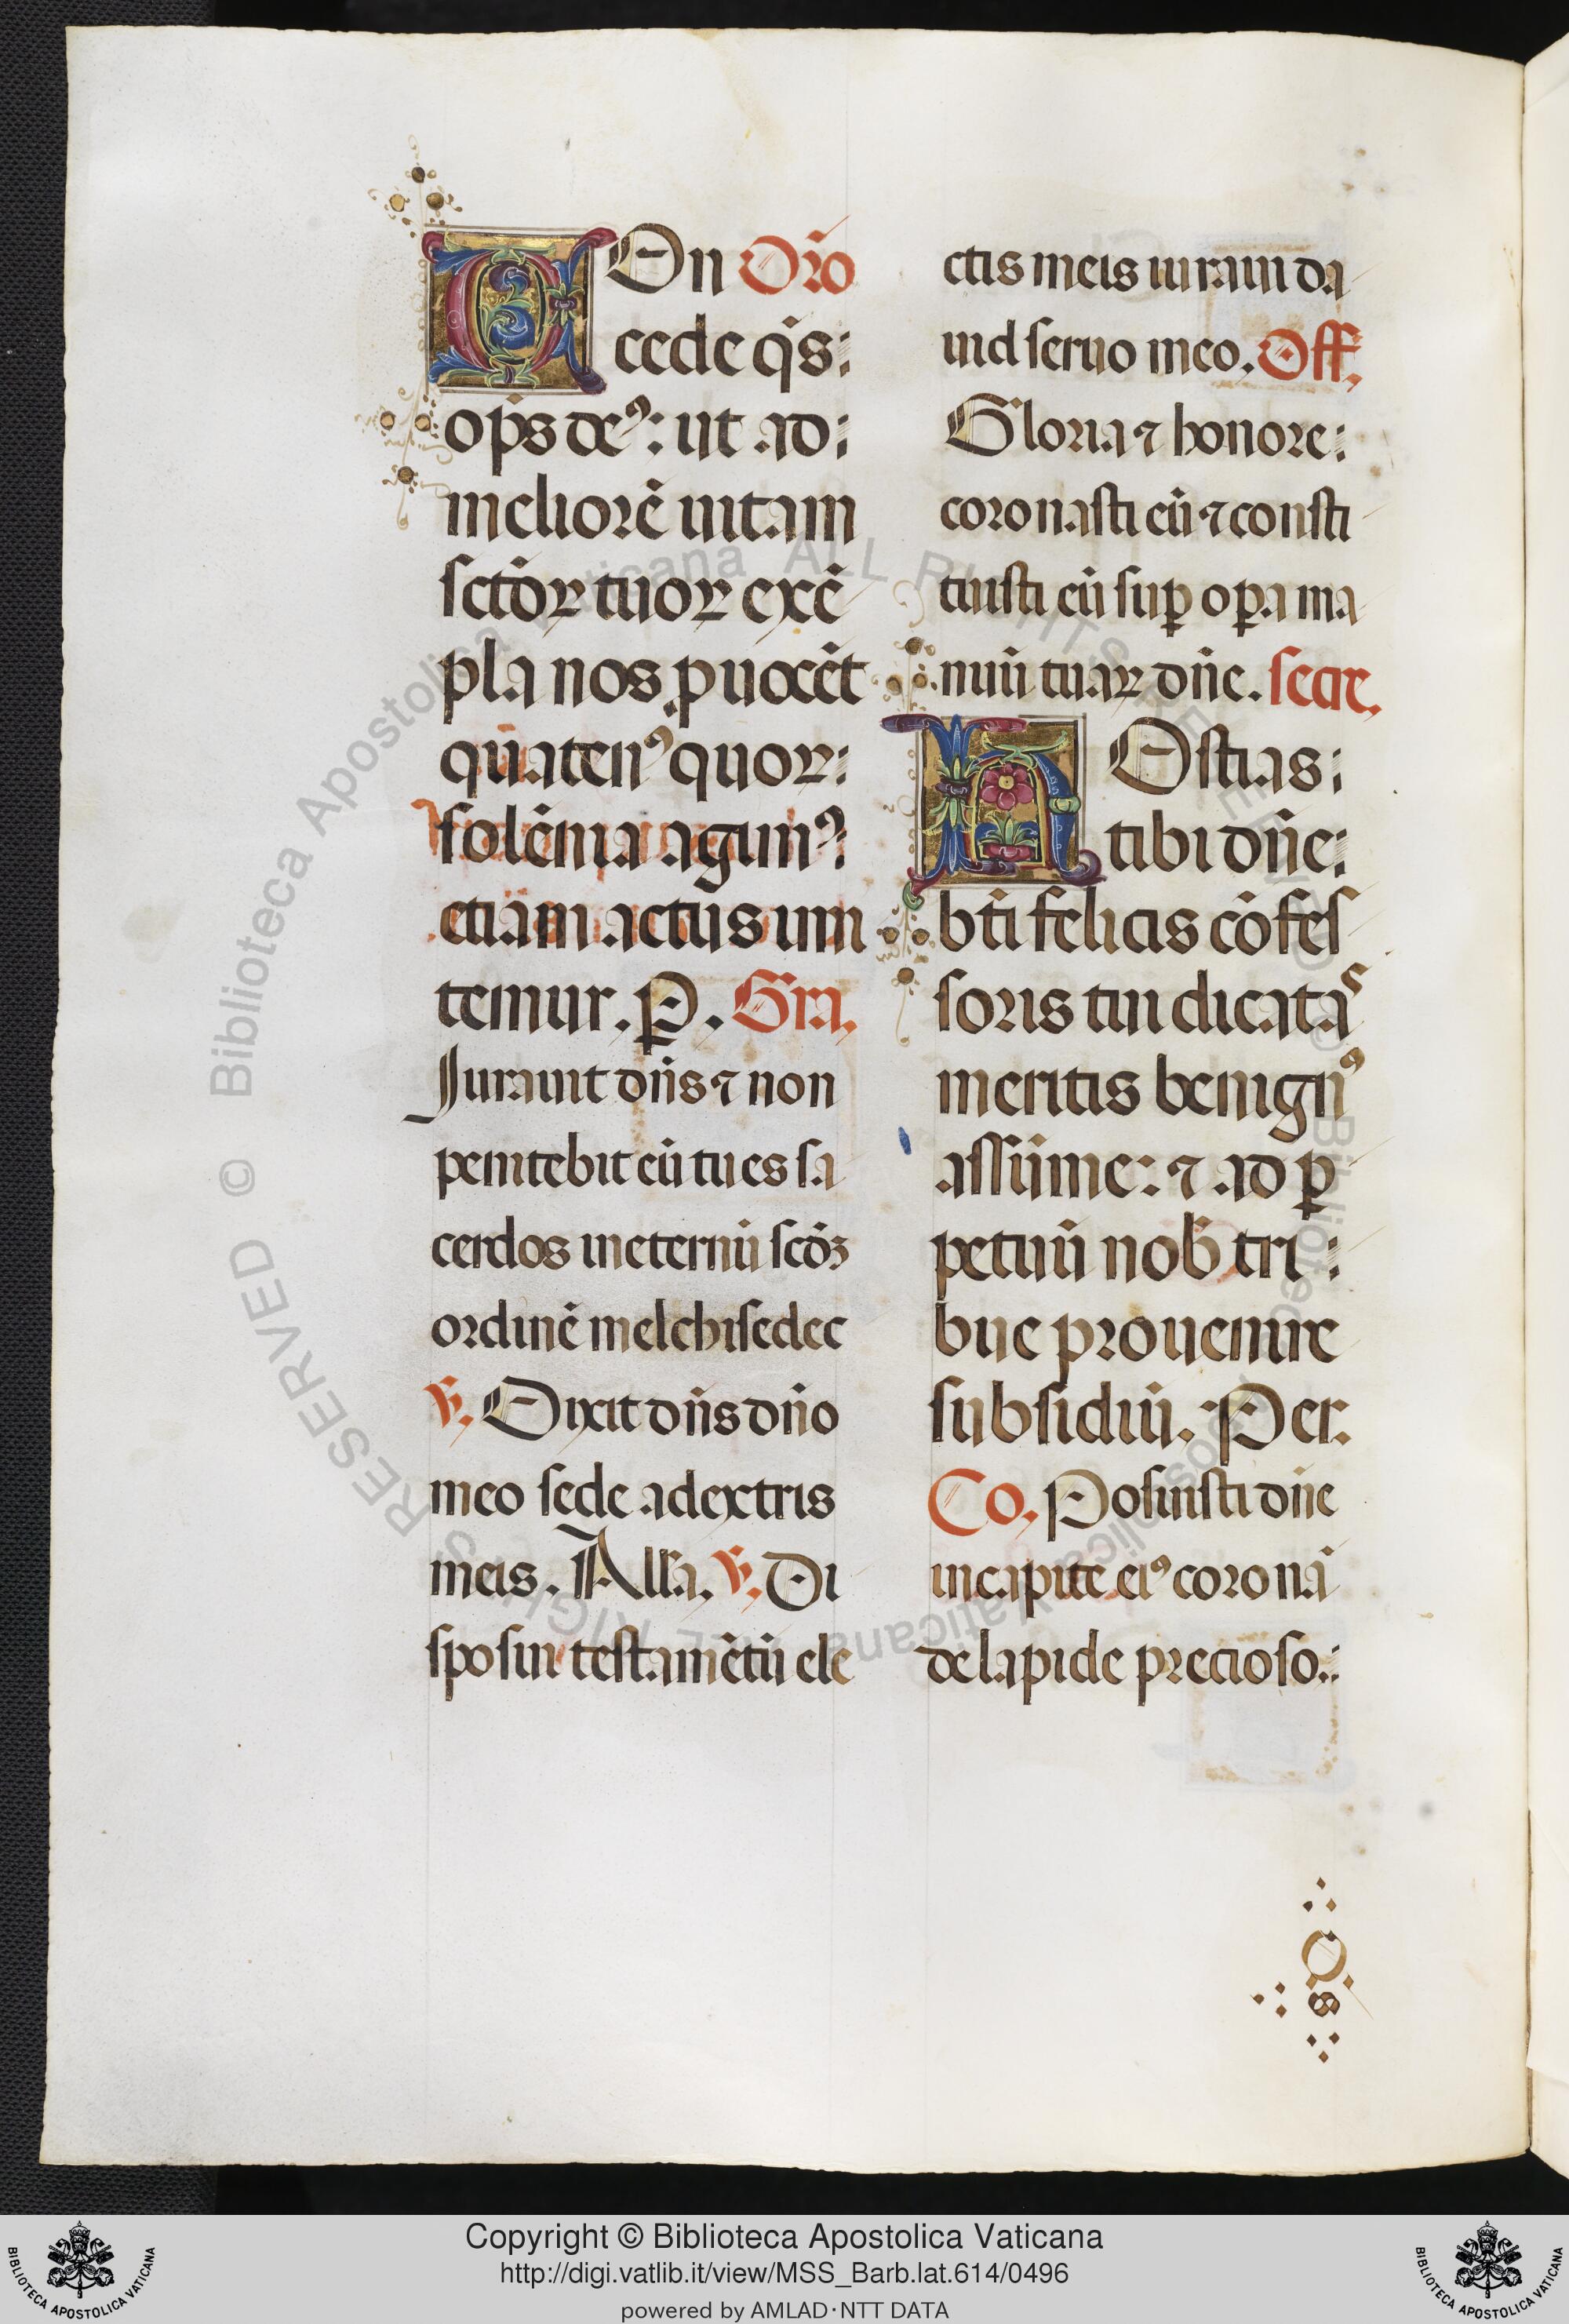 COn Or̃o
cede q̃s:
op̃s deꝰ: ut ad:
meliorẽ uitam
sctõꝝ tuoꝝ exẽ
pla nos ꝓuocẽt
quatenꝰ quoꝝ:
solẽnia agimꝰ:
etiam actus imi
temur. P̱. Gra.
Jurauit dñs ⁊ non
penitebit eũ tu es sa
cerdos ineternũ scd̃ꝫ
ordinẽ melchisedec
℣. Dixit dñs dño
meo sede adextris
meis. All̃a. ℣. Di
sposui testamẽtũ ele
ctis meis iuraui da
uid seruo meo. Off.
Gloria ⁊ honore:
coronasti eũ ⁊ consti
tuisti eũ suꝑ oꝑa ma
nuũ tuaꝝ dñe. secre.
HOstias:
tibi dñe:
bt̃i felicis cõfes
soris tui dicatas
meritis benignꝰ
assume: ⁊ ad ꝑ
petuũ nob̃ tri:
bue prouenire
subsidiũ. Per.
Co. Posuisti dñe
incapite eiꝰ coronã
de lapide precioso.:
Os
© Biblioteca Apostolica Vaticana ALL RIGHTS RESERVED
Copyright © Biblioteca Apostolica Vaticana
http://digi.vatlib.it/view/MSS_Barb.lat.614/0496
powered by AMLAD·NTT DATA
BIBLIOTECA APOSTOLICA VATICANA
BIBLIOTECA APOSTOLICA VATICANA